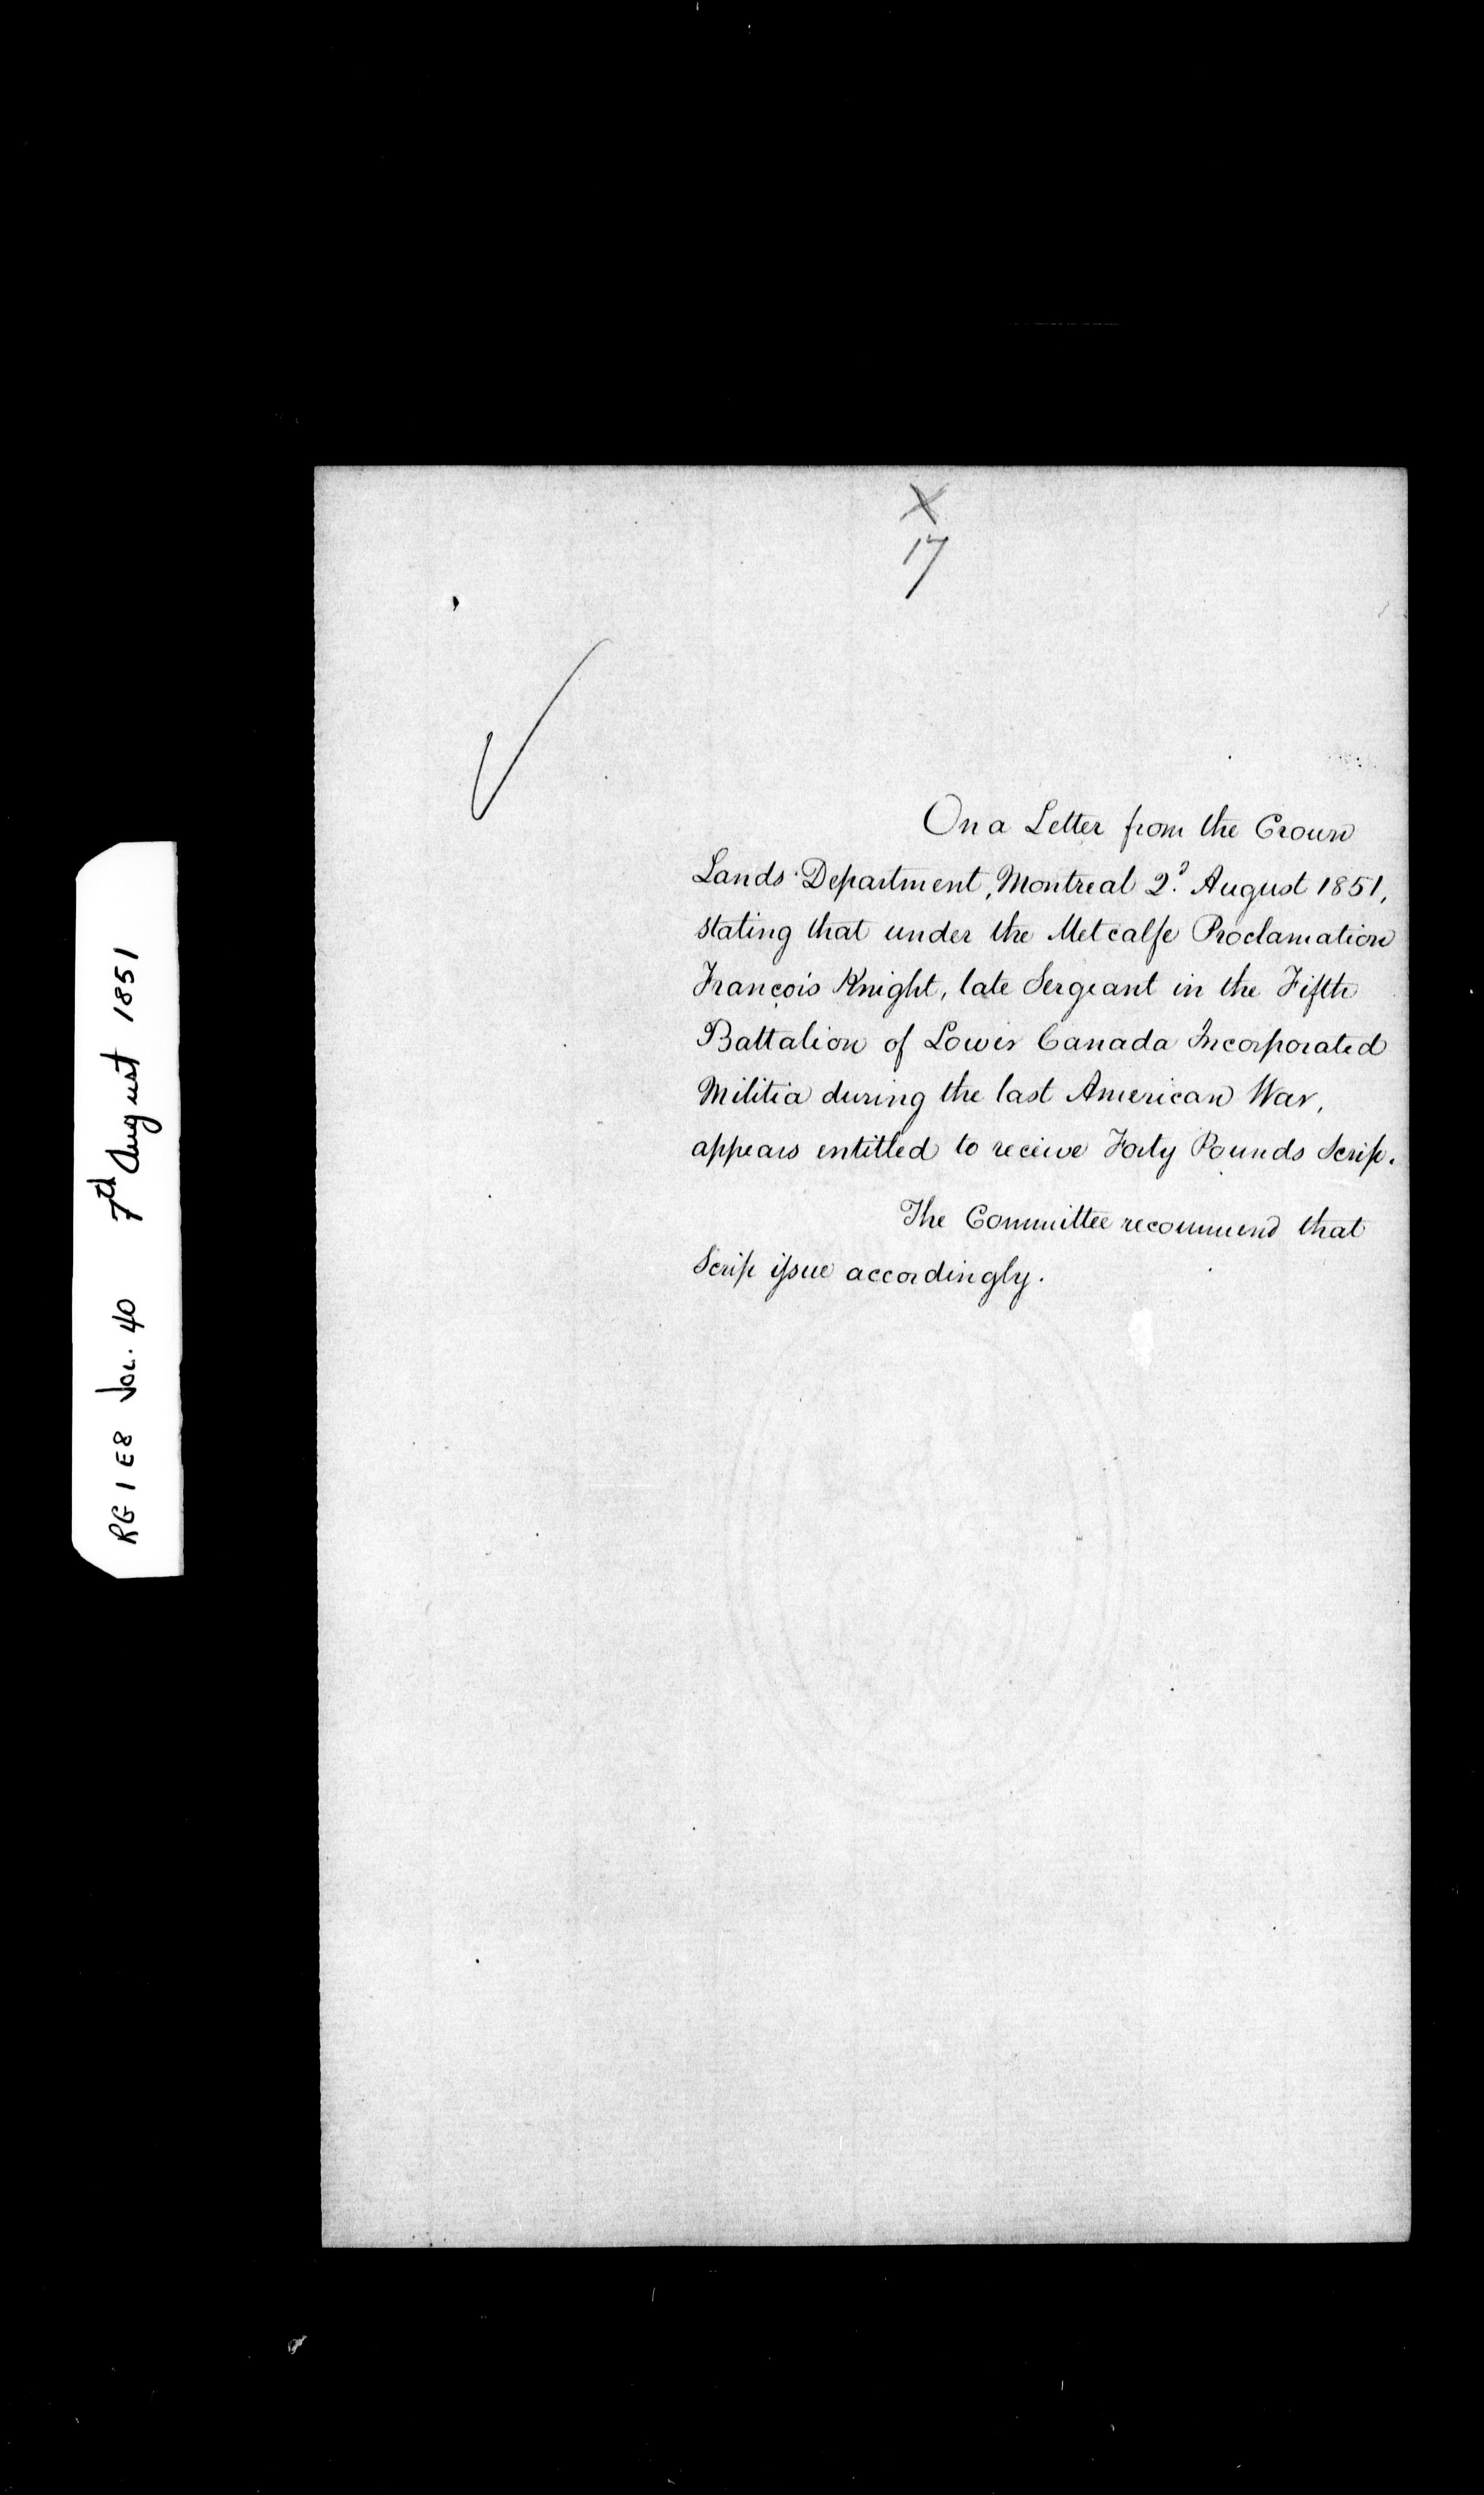 X
17
On a Letter from the Crown
Lands Department, Montreal 2d. August 1851,
stating that under the Metcalfe Proclamation
François Knight, late Sergeant in the Fifth
Battalion of Lower Canada Incorporated
Militia during the last American War,
appears entitled to receive Forty Pounds Scrip.
The Committee recommend that
Scrip issue accordingly.
RG 1 E8 Vol. 40 7th August 1851